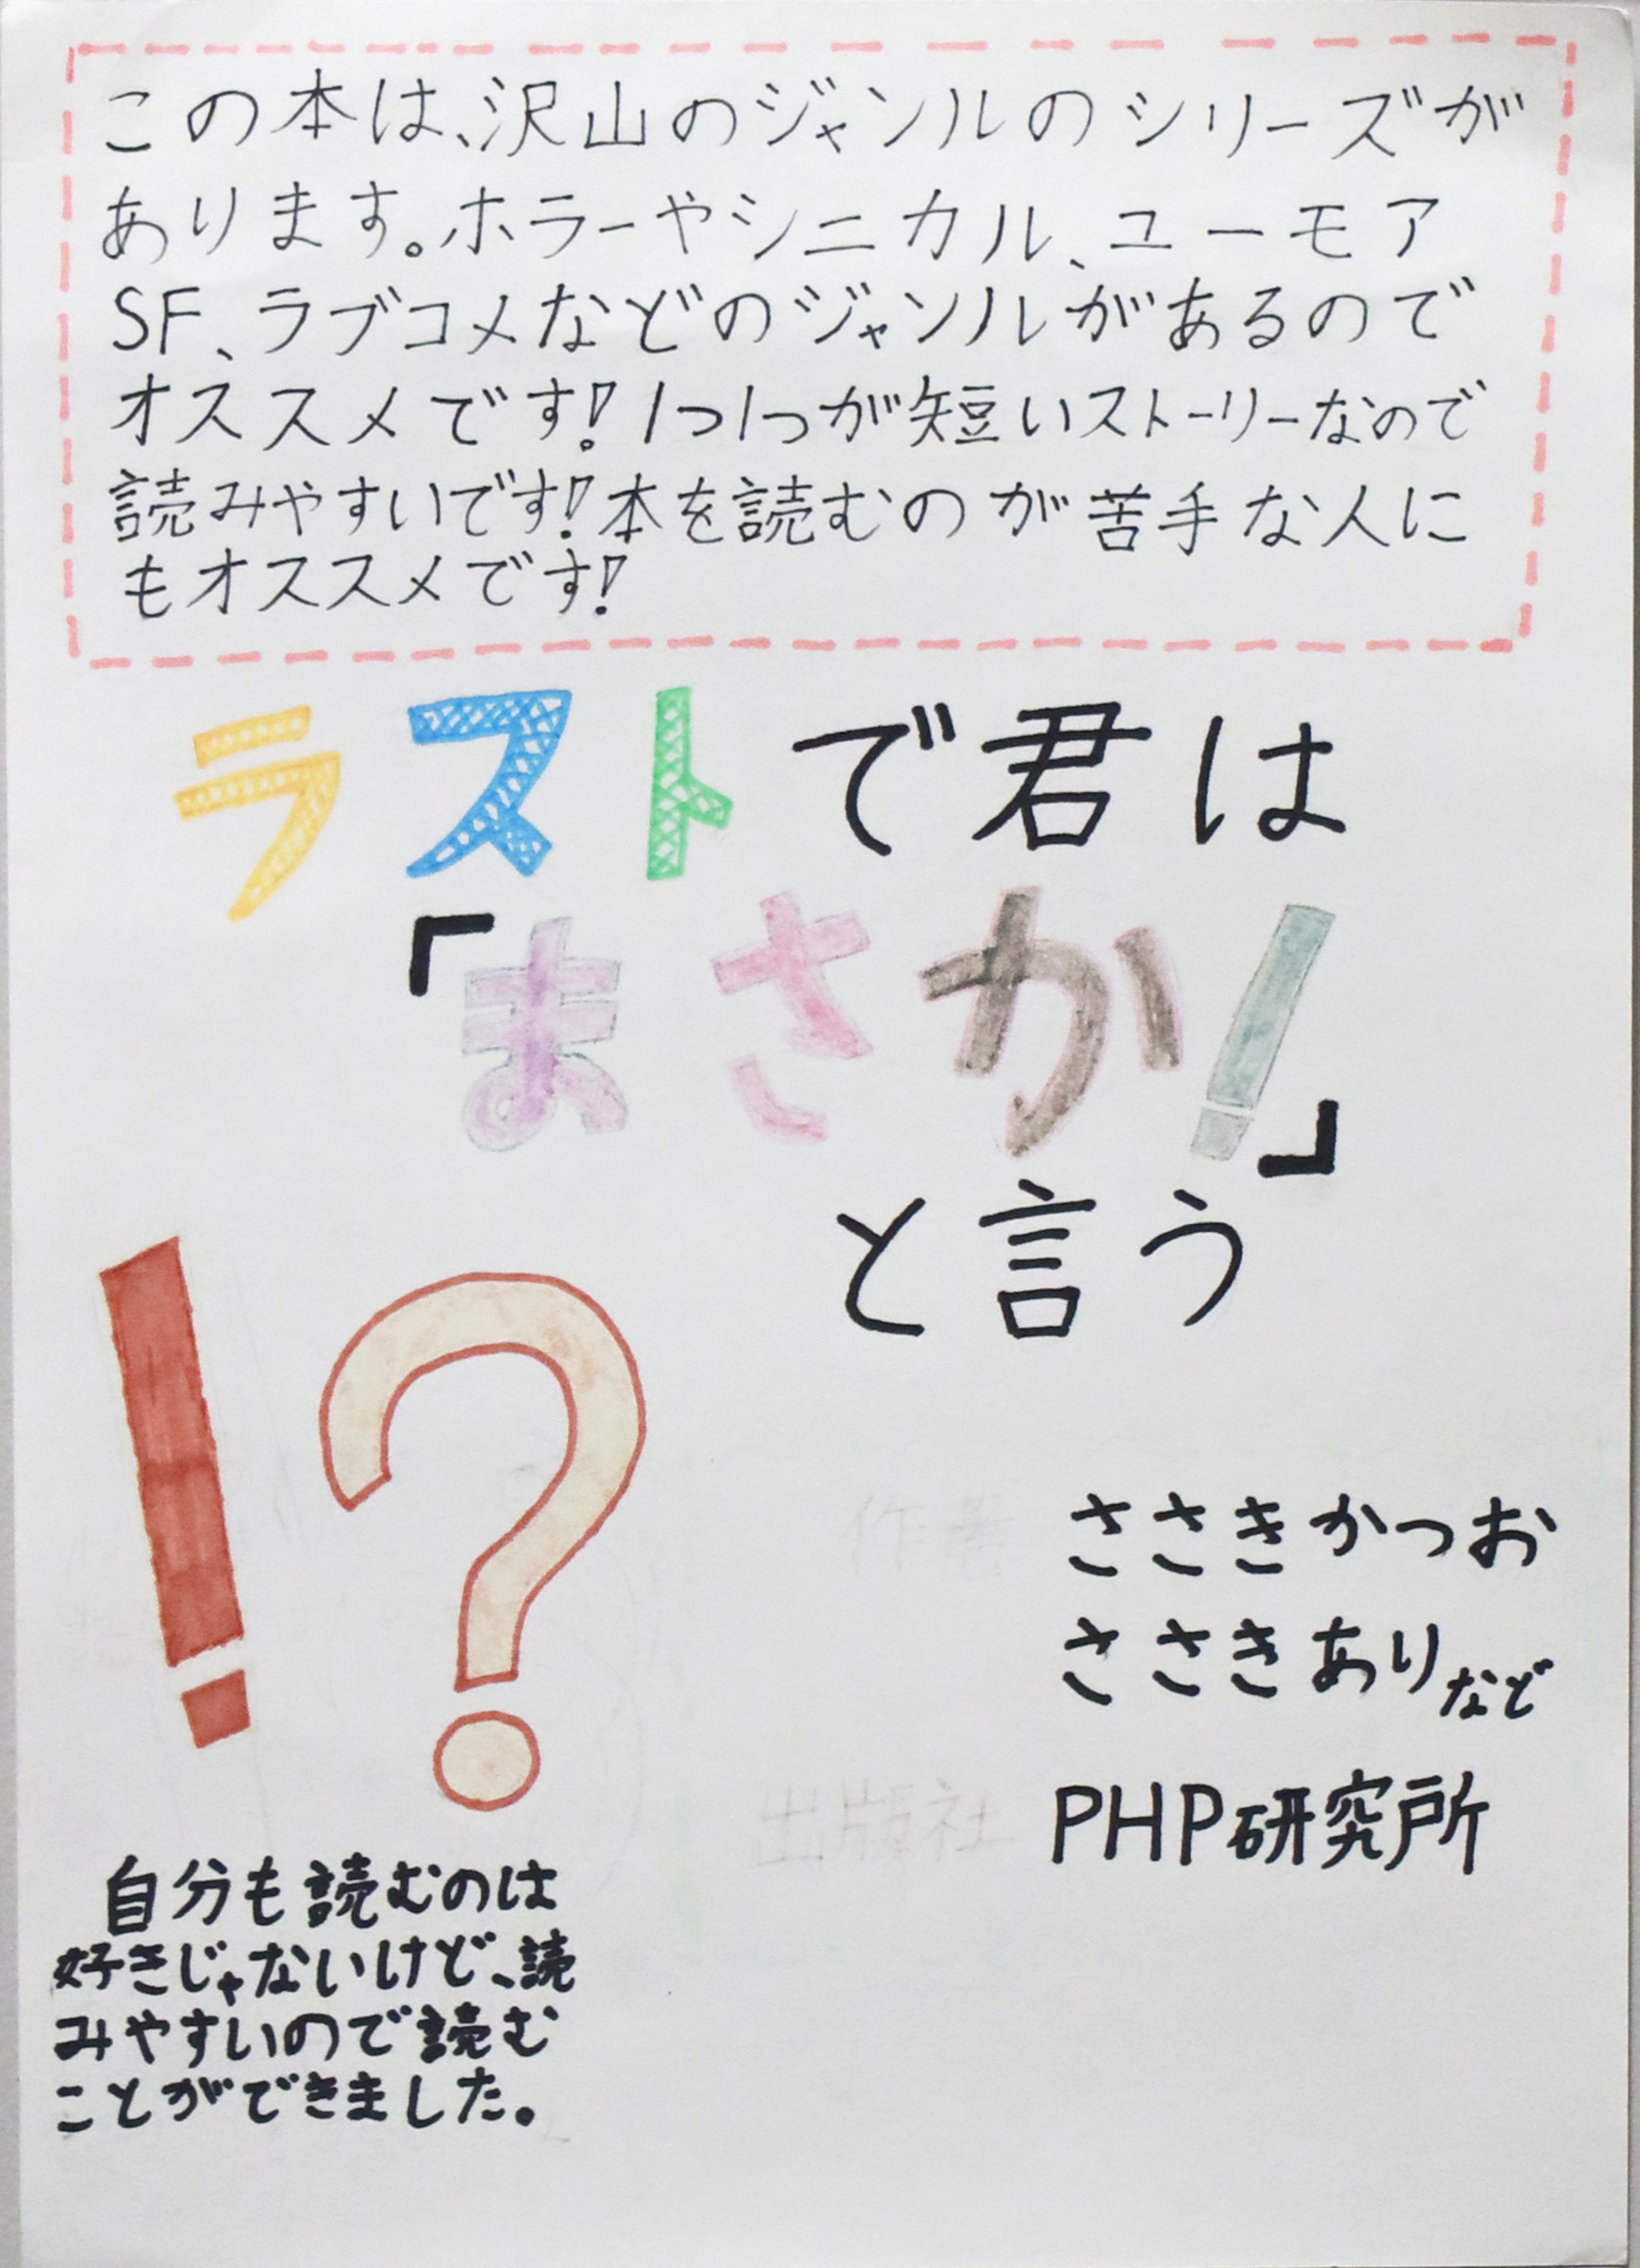 この本は、沢山のジャンルのシリーズが
あります。ホラーやシニカル、ユーモア
SF、ラブコメなどのジャンルがあるので
オススメです!1つ1つが短いストーリーなので
読みやすいです!本を読むのが苦手な人に
もオススメです!
ラストで君は
「まさか!」
と言う
!?
作者
ささきかつお
ささきありなど
出版社
PHP研究所
自分も読むのは
好きじゃないけど、読
みやすいので読む
ことができました。